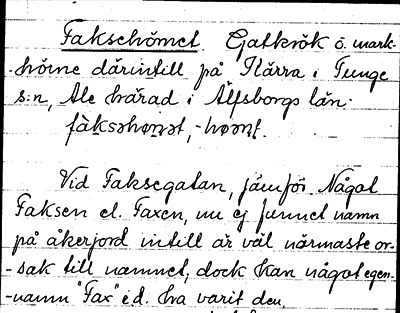 Faksehörnet. Gatkrök o. mark-
-hörne därintill på Kärra i Tunge
s:n, Ale härad i Älfsborgs län.
fàksəhøṇət, -høṇt.
Vid Faksegatan, jämför. Något
Faksen el. Faxen, nu ej funnet namn
på åkerjord intill är väl närmaste or-
-sak till namnet, dock kan något egen-
-namn "Fax" e.d. ha varit den.